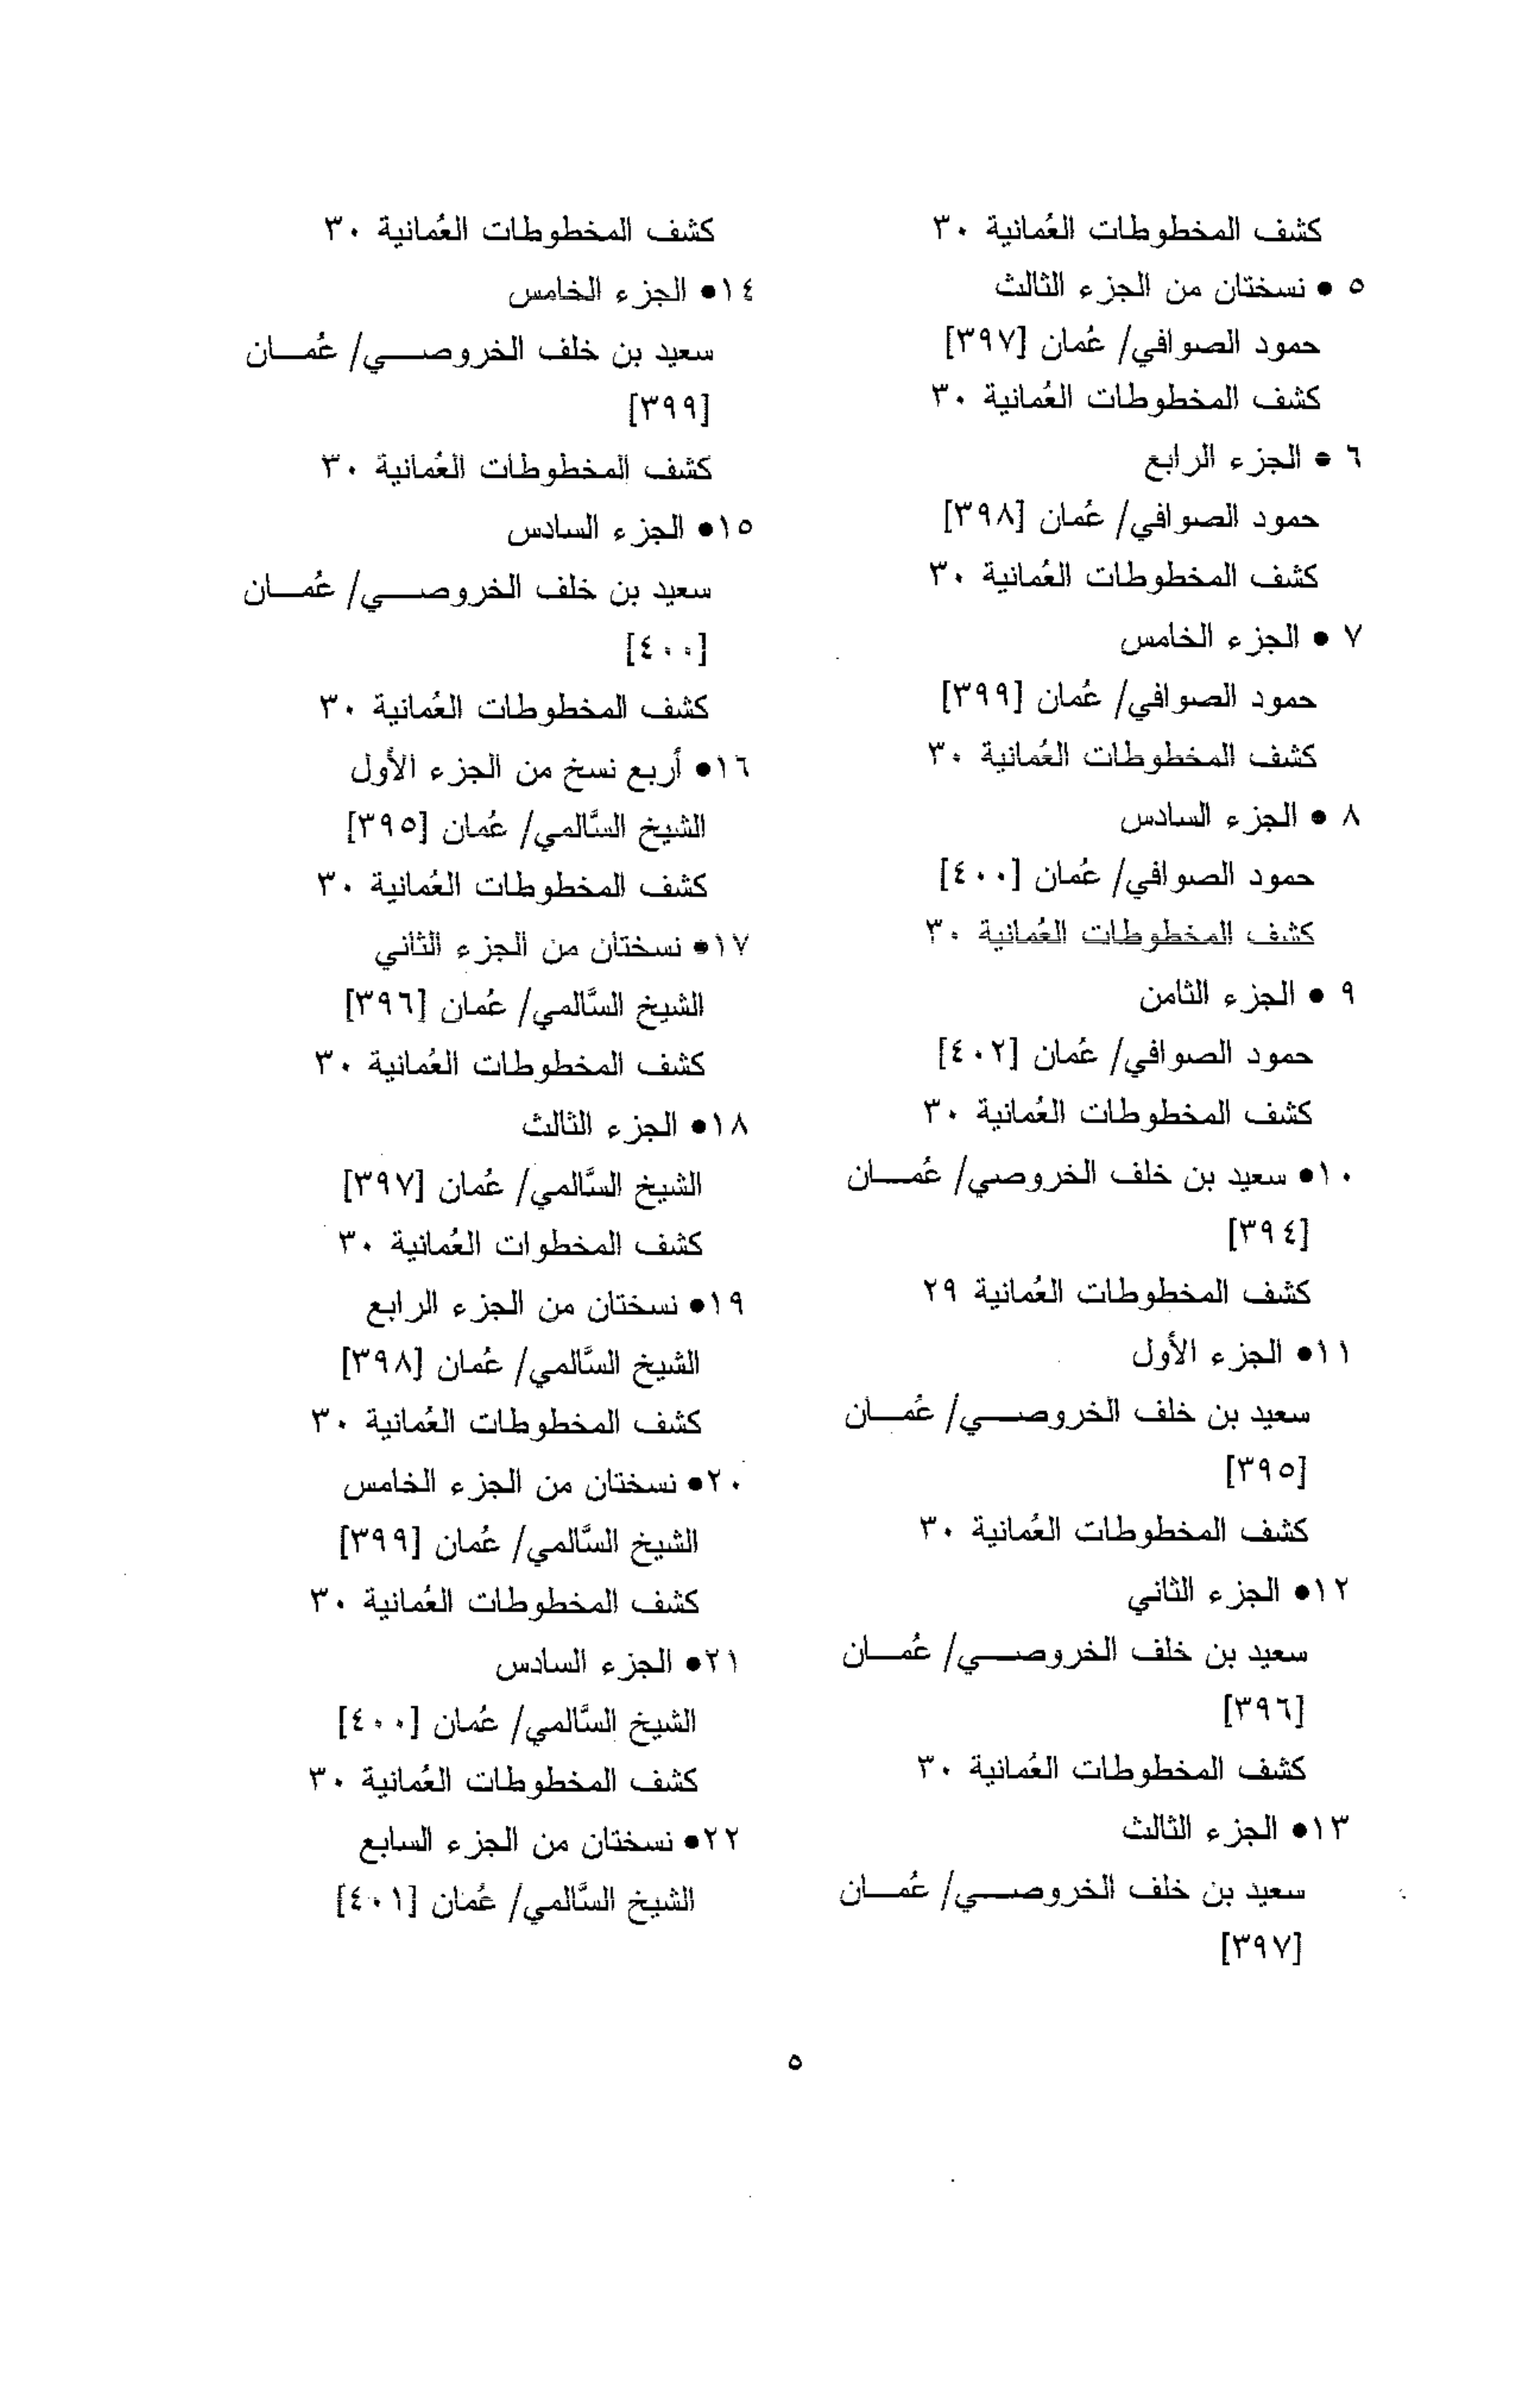 كشف المخطوطات العُمانية ٣٠
٥ • نسختان من الجزء الثالث
حمود الصوافي/ عُمان [٣٩٧]
كشف المخطوطات العُمانية ٣٠
٦ • الجزء الرابع
حمود الصوافي/ عُمان [٣٩٨]
كشف المخطوطات العُمانية ٣٠
٧ • الجزء الخامس
حمود الصوافي/ عُمان [٣٩٩]
كشف المخطوطات العُمانية ٣٠
٨ • الجزء السادس
حمود الصوافي/ عُمان [٤٠٠]
كشف المخطوطات العُمانية ٣٠
٩ • الجزء الثامن
حمود الصوافي/ عُمان [٤٠٢]
كشف المخطوطات العُمانية ٣٠
١٠• سعيد بن خلف الخروصي/ عُمــان
[٣٩٤]
كشف المخطوطات العُمانية ٢٩
١١• الجزء الأول
سعيد بن خلف الخروصــي/ عُمــان
[٣٩٥]
كشف المخطوطات العُمانية ٣٠
١٢• الجزء الثاني
سعيد بن خلف الخروصــي/ عُمــان
[٣٩٦]
كشف المخطوطات العُمانية ٣٠
١٣• الجزء الثالث
سعيد بن خلف الخروصــي/ عُمــان
[٣٩٧]
كشف المخطوطات العُمانية ٣٠
١٤• الجزء الخامس
سعيد بن خلف الخروصــي/ عُمــان
[٣٩٩]
كشف المخطوطات العُمانية ٣٠
١٥• الجزء السادس
سعيد بن خلف الخروصــي/ عُمــان
[٤٠٠]
كشف المخطوطات العُمانية ٣٠
١٦• أربع نسخ من الجزء الأول
الشيخ السَّالمي/ عُمان [٣٩٥]
كشف المخطوطات العُمانية ٣٠
١٧• نسختان من الجزء الثاني
الشيخ السَّالمي/ عُمان [٣٩٦]
كشف المخطوطات العُمانية ٣٠
١٨• الجزء الثالث
الشيخ السَّالمي/ عُمان [٣٩٧]
كشف المخطوات العُمانية ٣٠
١٩• نسختان من الجزء الرابع
الشيخ السَّالمي/ عُمان [٣٩٨]
كشف المخطوطات العُمانية ٣٠
٢٠• نسختان من الجزء الخامس
الشيخ السَّالمي/ عُمان [٣٩٩]
كشف المخطوطات العُمانية ٣٠
٢١• الجزء السادس
الشيخ السَّالمي/ عُمان [٤٠٠]
كشف المخطوطات العُمانية ٣٠
٢٢• نسختان من الجزء السابع
الشيخ السَّالمي/ عُمان [٤٠١]
٥